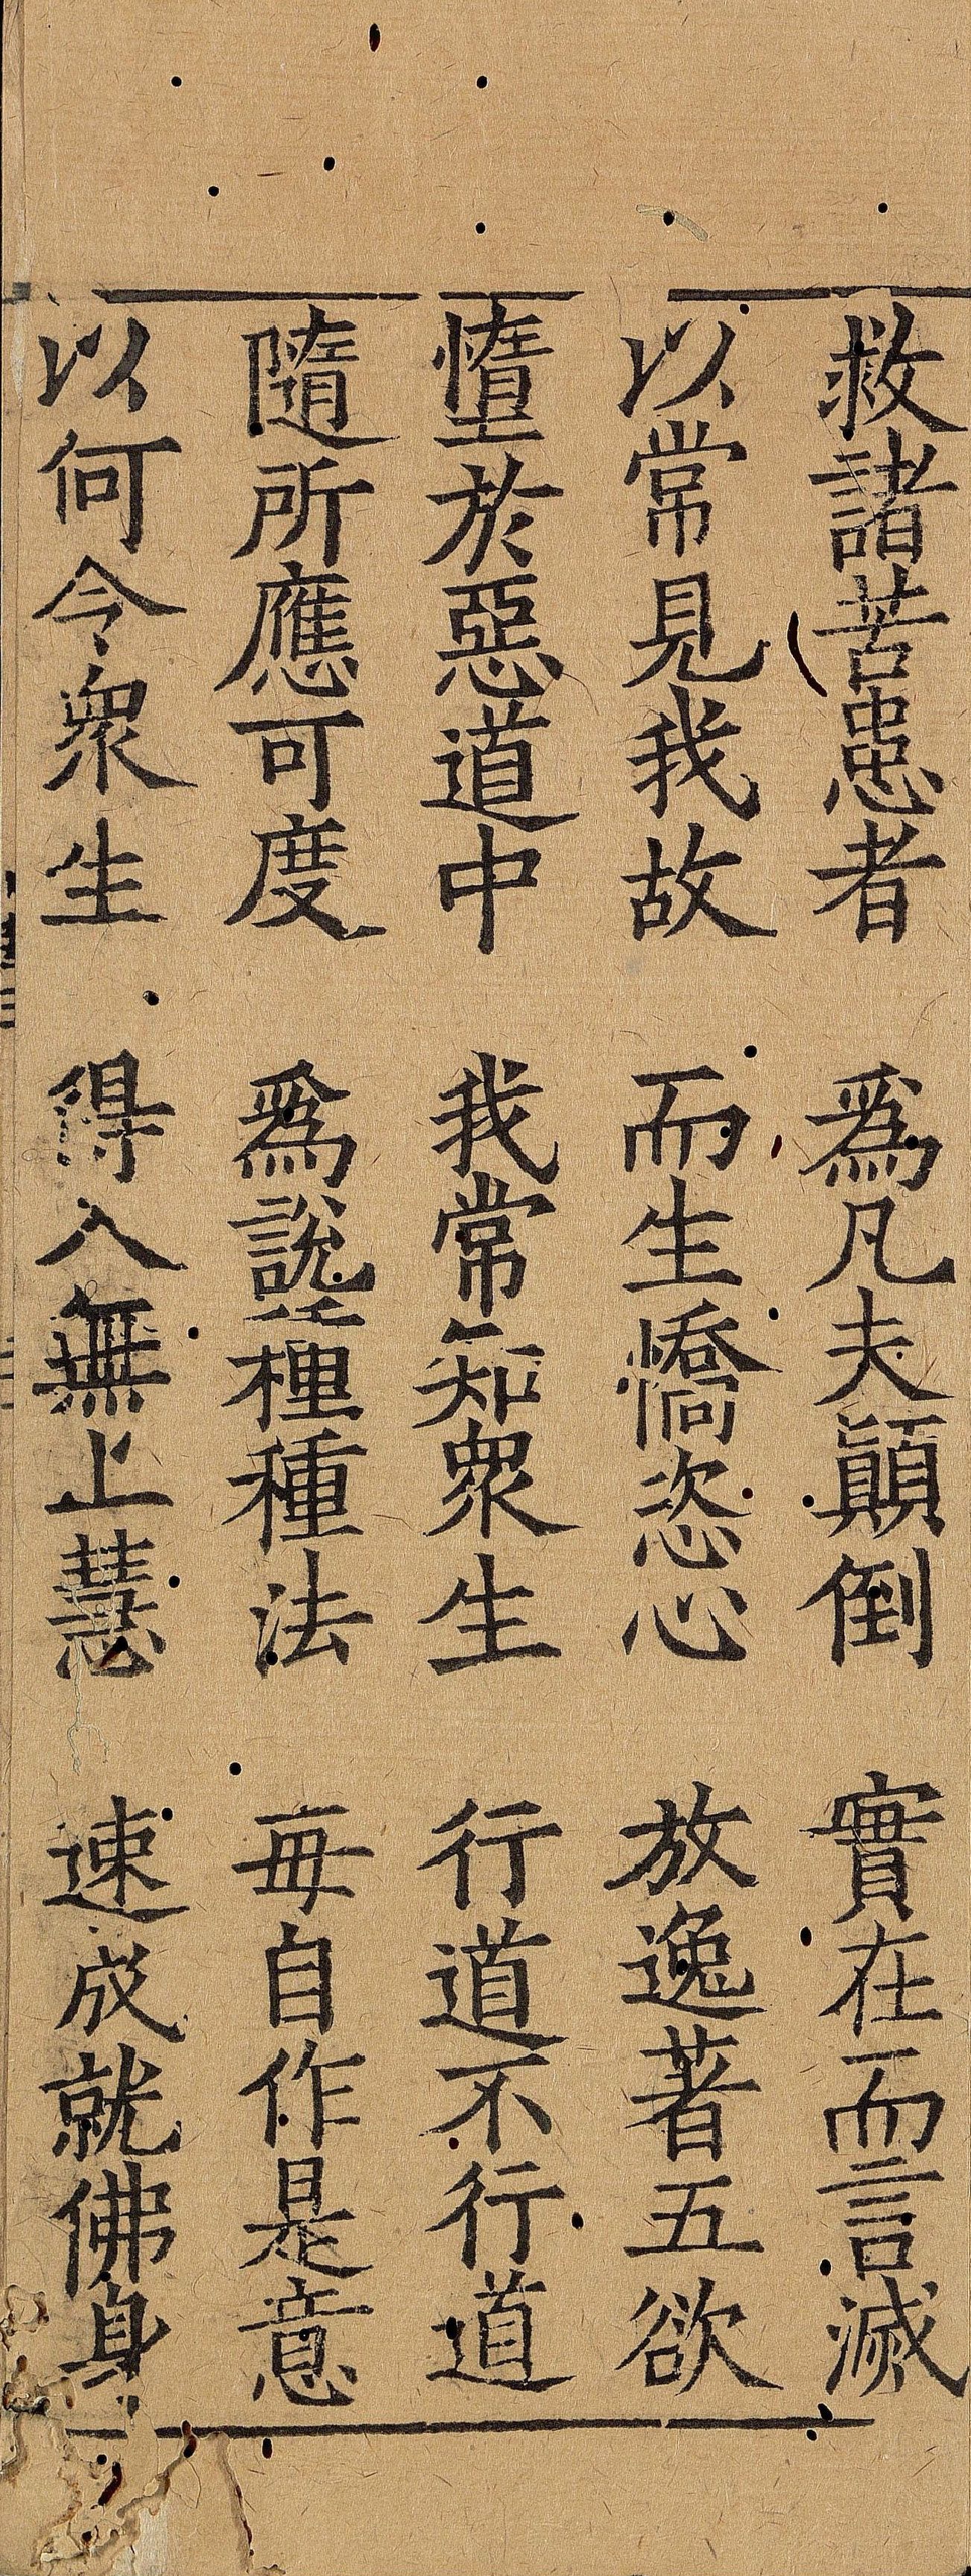 救諸苦患者　爲凡夫顚倒　實在而言滅
以常見我故　而生憍恣心　放逸著五欲
憻於惡道中　我常知衆生　行道不行道
隨所應可度　爲說種種法　每自作是意
以何令衆生　得入無上慧　速成就佛身